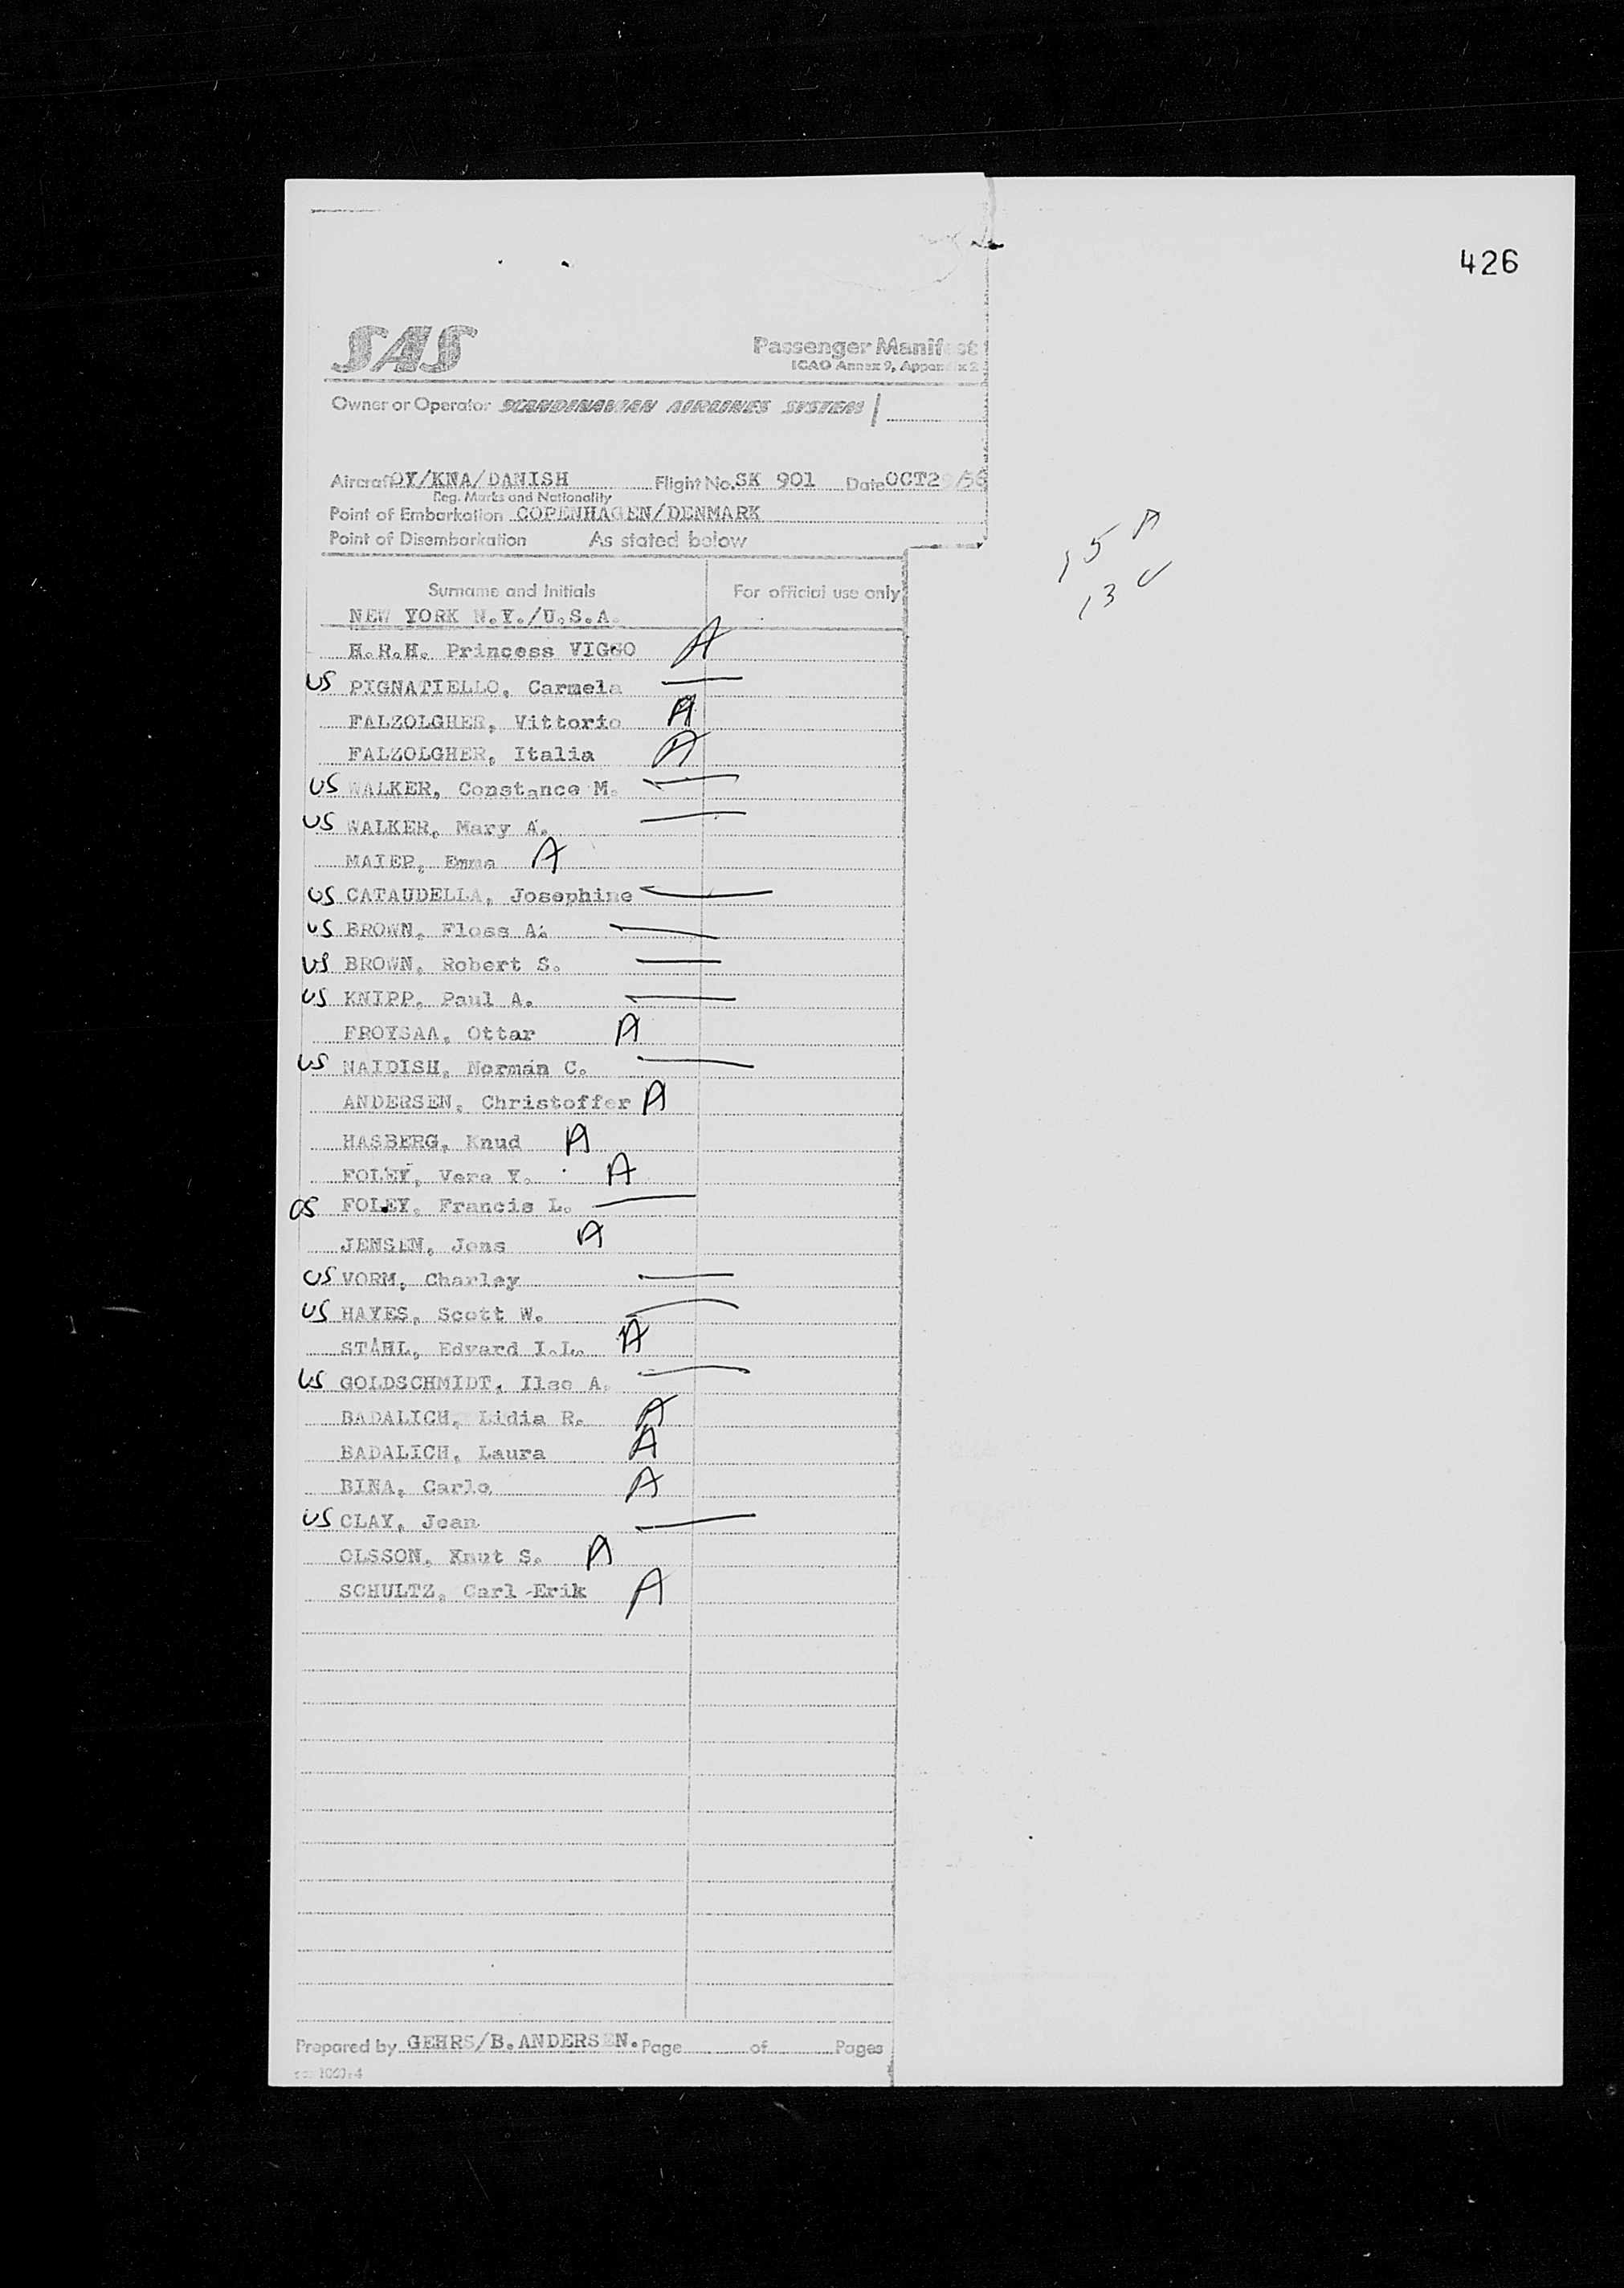 426
SAS
Passenger Manifest
ICAO Annex 9, Appendix 2
Owner or Operator SCANDINAVIAN AIRLINES SYSTEM
Aircraft OY/KNA/DANISH Flight No. SK 901 Date OCT2 /56
Reg. Marks and Nationality
Point of Embarkation COPENHAGEN/DENMARK
Point of Disembarkation As stated below
15 A
13 U
Surname and Initials For official use only
NEW YORK N.Y./U.S.A.
H.R.H. Princess VIGGO A
US PIGNATIELLO, Carmela
FALZOLGHER, Vittorio A
FALZOLGHER, Italia A
US WALKER, Constance M.
US WALKER, Mary A.
MAIER, Emma A
US CATAUDELLA, Josephine
US BROWN, Floss A.
US BROWN, Robert S.
US KNIPP, Paul A.
FROYSAA, Ottar A
US NAIDISH, Norman C.
ANDERSEN, Christoffer A
HASBERG, Knud A
FOLEY, Vera Y. A
US FOLEY, Francis L.
JENSEN, Jens A
US VORM, Charley
US HAYES, Scott W.
STÅHL, Edvard I.L. A
US GOLDSCHMIDT, Ilse A.
BADALICH, Lidia R. A
BADALICH, Laura A
BINA, Carlo A
US CLAY, Jean
OLSSON, Knut S. A
SCHULTZ, Carl-Erik A
Prepared by GEHRS/B.ANDERSEN. Page of Pages